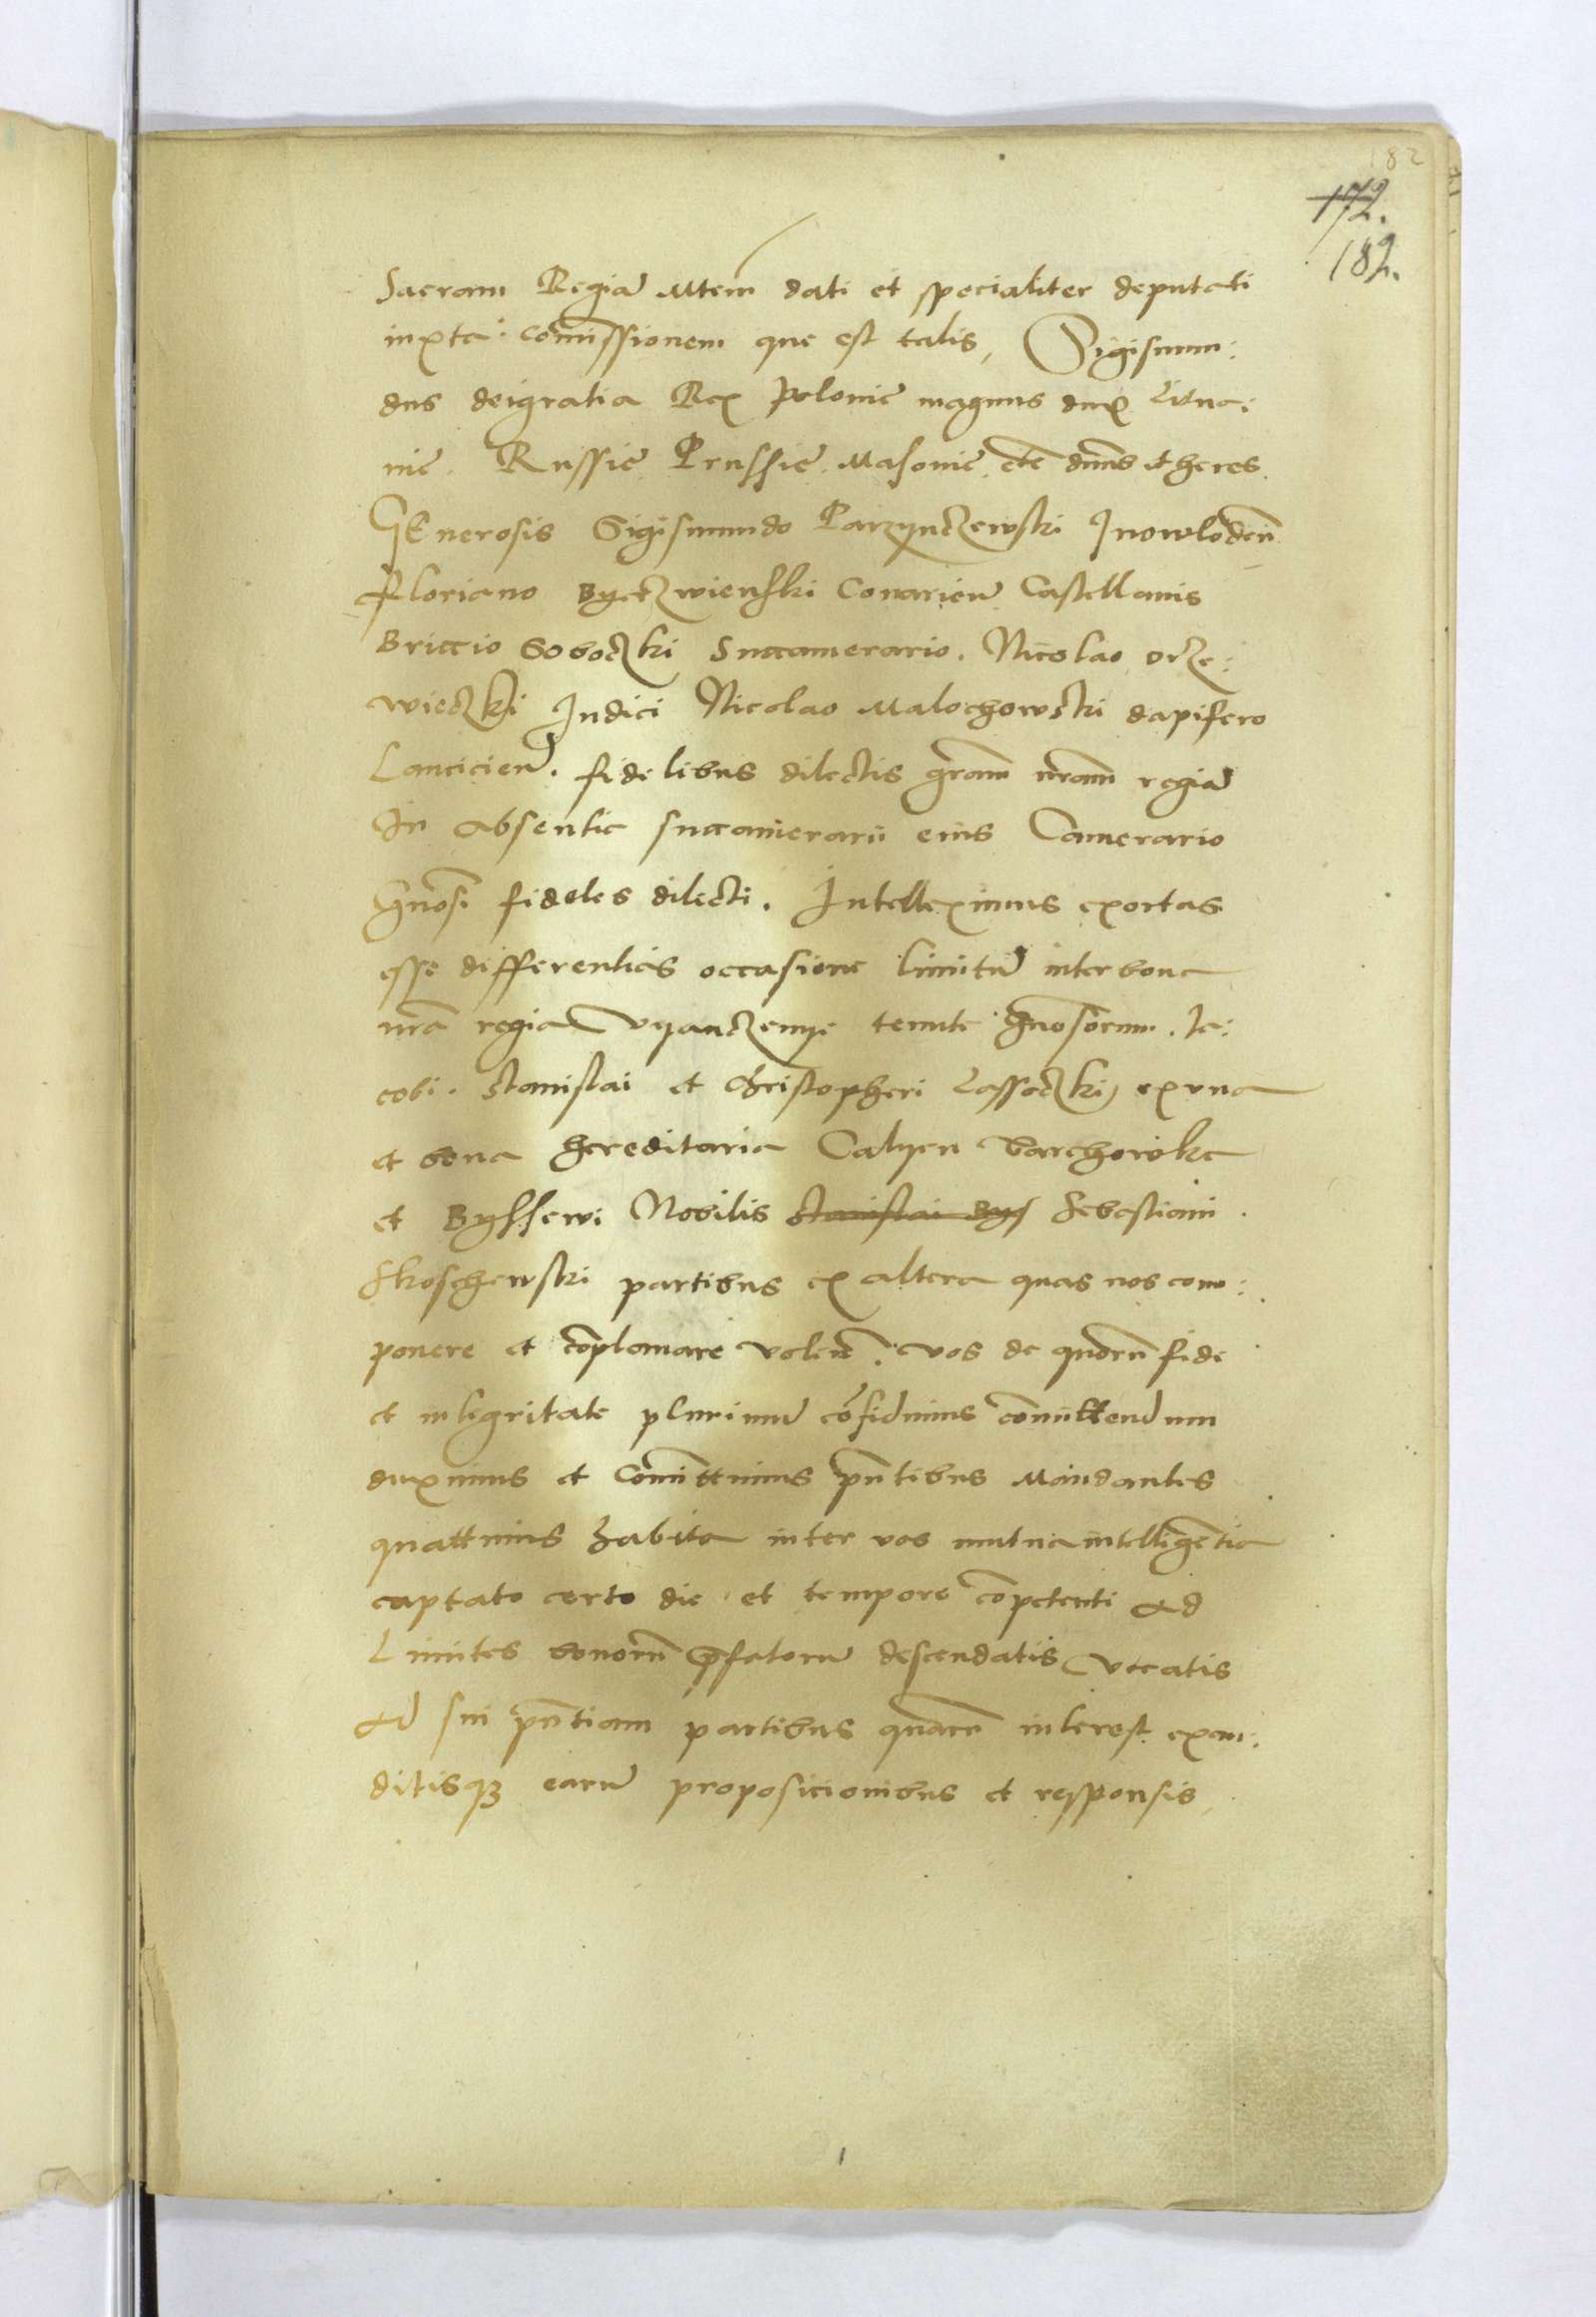 182
172.
182.
Sacram Regia Mtem dati et specialiter deputati
iuxta comissionem que est talis, Sigismun:
dus deigratia Rex Polonie magnus dux Litua:
nie Russie Prussie Masovie etc dnus et heres.
GEnerosis Sigismundo Parzynczewski Inowlodeñ
Floriano Byetzwienski Conarien Castellanis
Briccio Soboczki Succamerario. Nicolao orze:
wieczki Iudici Nicolao Malochowski dapifero
Lancicien. fidelibus dilectis gram nram regia
In absentia succamerarii eius Camerario
Gnosi fideles dilecti. Intelleximus exortas
esse differentias occasione limitu inter bona
nra regia Vyanczemye tenute Gnosorum. Ia:
cobi. Stanislai et Christopheri Lassoczki exuna
et bona hereditaria Calyen Barchowka
et Byssewi Nobilis Stanislai Bys Sebastiani
Skoschewski partibus ex altera quas nos com:
ponere et complanare volen. vos de quoru fide
et integritate plurimu cofidimus comittendum
duximus et Comittimus pntibus Mandantes
quattnus habita inter vos mutua intelligentia
captato certo die et tempore competenti ad
Limites bonoru pfatoru descendatis vocatis
ad sui pntiam partibus quaru interest exau:
ditisq earu proposicionibus et responsis